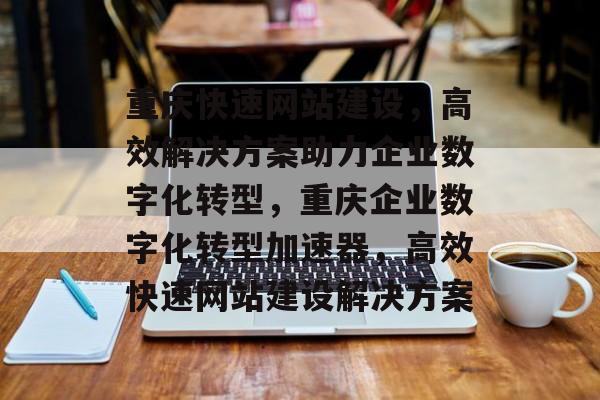 重庆快速网站建设，高
效解决方案助力企业数
字化转型，重庆企业数
字化转型加速器，高效
快速网站建设解决方案